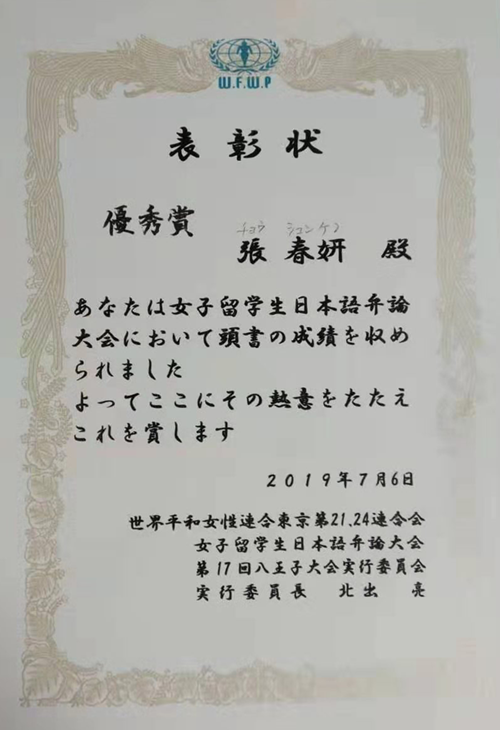 W.F.W.P
表彰状
優秀賞
チョウ シュンケン
張 春妍 殿
あなたは女子留学生日本語弁論
大会において頭書の成績を収め
られました
よってここにその熱意をたたえ
これを賞します
2019年7月6日
世界平和女性連合東京第21,24連合会
女子留学生日本語弁論大会
第17回八王子大会実行委員会
実行委員長 北出 亮